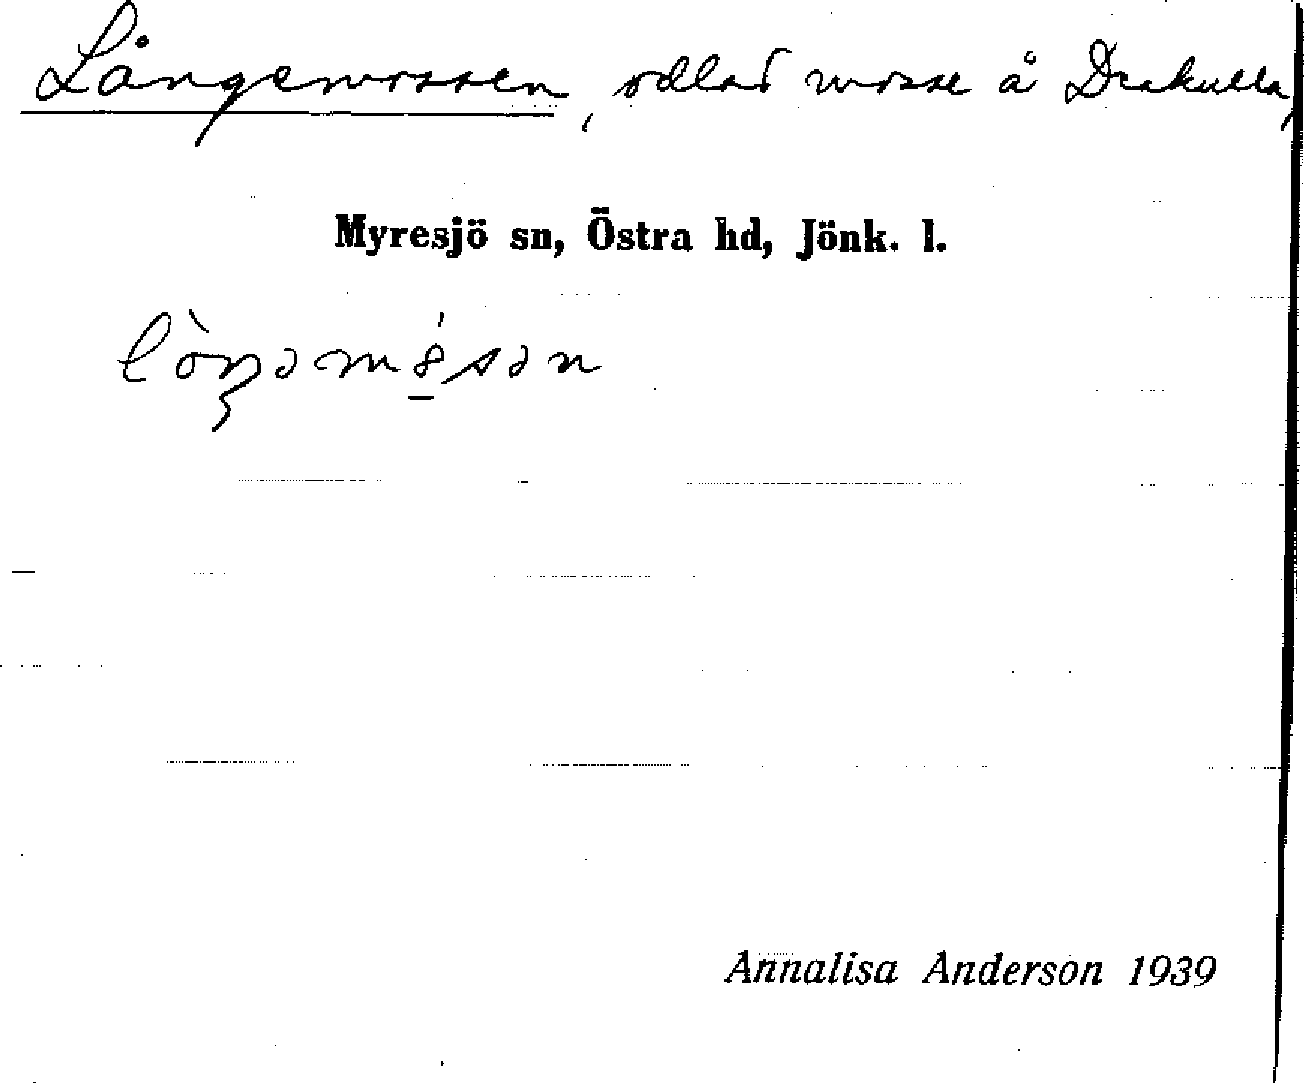 Långemossen, odlad mosse å Drakulla,
Myresjö sn, Östra hd, Jönk. l.
Annalisa Anderson 1939